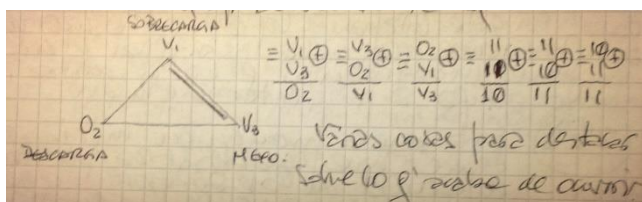 SOBRECARGA
V1
O2
V3
DESCARGA
≡ V1 ⊕ ≡ V3 ⊕ ≡ O2 ⊕ ≡ 11 ⊕ ≡ 11 ⊕ ≡ 10 ⊕
V3 O2 V1 10 10 11
O2 V1 V3 10 11 11
Varias cosas para destacar
sobre lo q' acaba de ocurrir